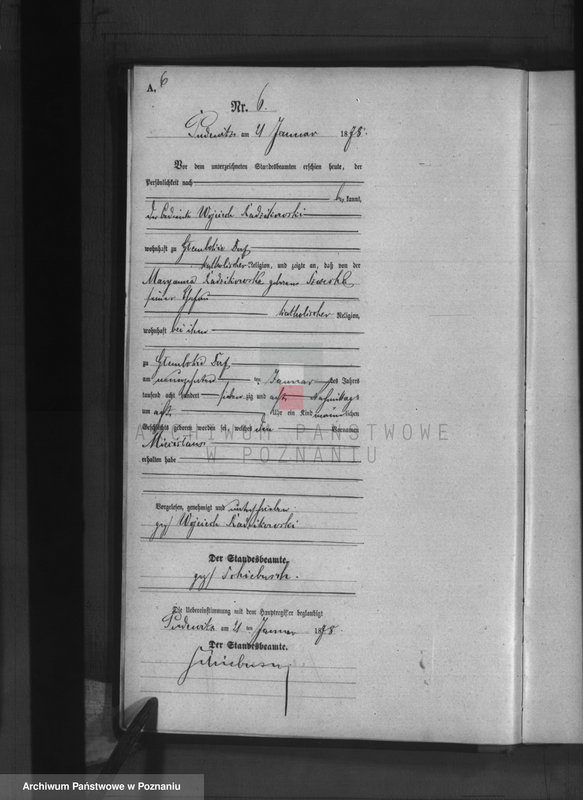 A. 6
Nr. 6.
Pudewitz am 21 Januar 1878.
Vor dem unterzeichneten Standesbeamten erschien heute, der
Persönlichkeit nach
be kannt,
der
Wojciech Kadzikowski
wohnhaft zu Glembokie Dorf
katholischer Religion, und zeigte an, daß von der
Maryanna Kadzikowska geborene
seiner Ehefrau
katholischer Religion,
wohnhaft bei ihm
zu Glembokie Dorf
am neunzehnten ten Januar des Jahres
tausend acht hundert sieben zig und acht Nachmittags
um acht Uhr ein Kind männlichen
Geschlechts geboren worden sei, welches den Vornamen
Miecislaus
erhalten habe
Vorgelesen, genehmigt und unterschrieben
gez/ Wojciech Kadzikowski
Der Standesbeamte.
gez/
Die Uebereinstimmung mit dem Hauptregister beglaubigt
Pudewitz am 21 ten Januar 1878.
Der Standesbeamte.
ARCHIWUM PAŃSTWOWE
W POZNANIU
Archiwum Państwowe w Poznaniu